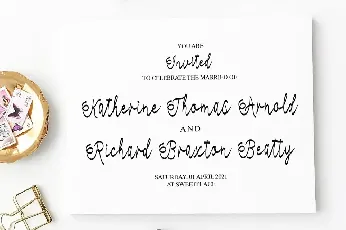 YOU ARE
Invited
TO CELEBRATE THE MARRIED OF
Katherine Thomas Arnold
AND
Richard Braxton Beatty
SATURDAY, 01 APRIL 2021
AT SWEET PLACE